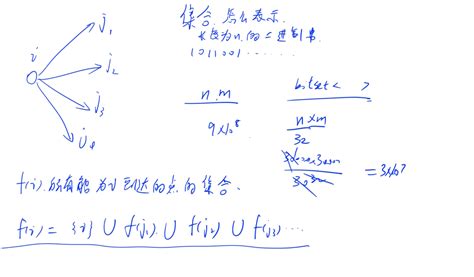 集合怎么表示
长度为n的二进制串
1011001......
i
j1
j2
j3
n.m
bitset< >
n×m
32
f(i) 所有能为i到达的点的集合、
f(i) = {i} ∪ f(j1) ∪ f(j2) ∪ f(j3) ...